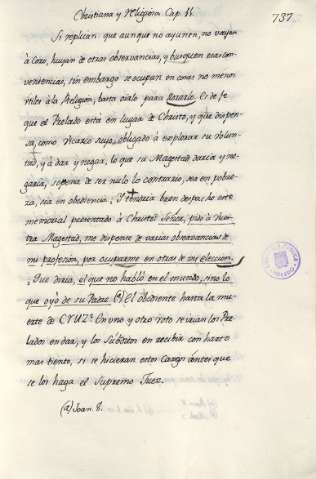 Christiana y Religiosa Cap. 11.
737.
Si replican que aunque no ayunen, no vayan
à Coro, huyan de otras observancias, y busquen esas con-
veniencias, sin embargo se ocupan en cosas no menos
útiles à la Religion; basta oirlo para llorarlo. Es de fe
que el Prelado està en lugar de Christo, y que dispen-
sa, como Vicario suyo, obligado à explorar su volun-
tad, y à dar y negar, lo que su Magestad daria y ne-
garia, sopena de ser nulo lo contrario, sea en pobre-
za, sea en obediencia. Y tendria buen despacho este
memorial presentado à Christo? Señor, pido à Vues-
tra Magestad, me dispense de varias observancias de
mi profesion, por ocuparme en otras de mi eleccion.
Que diria, el que no habló en el mundo, sino lo
que oyó de su Padre (a) el Obediente hasta la mu-
erte de CRUZ? En uno y otro voto se irian los Pre-
lados en dar, y los Subditos en recibir con harto
mas tiento, si se hicieran estos cargos àntes que
se los haga el Supremo Juez.
(a) Joan. 8.